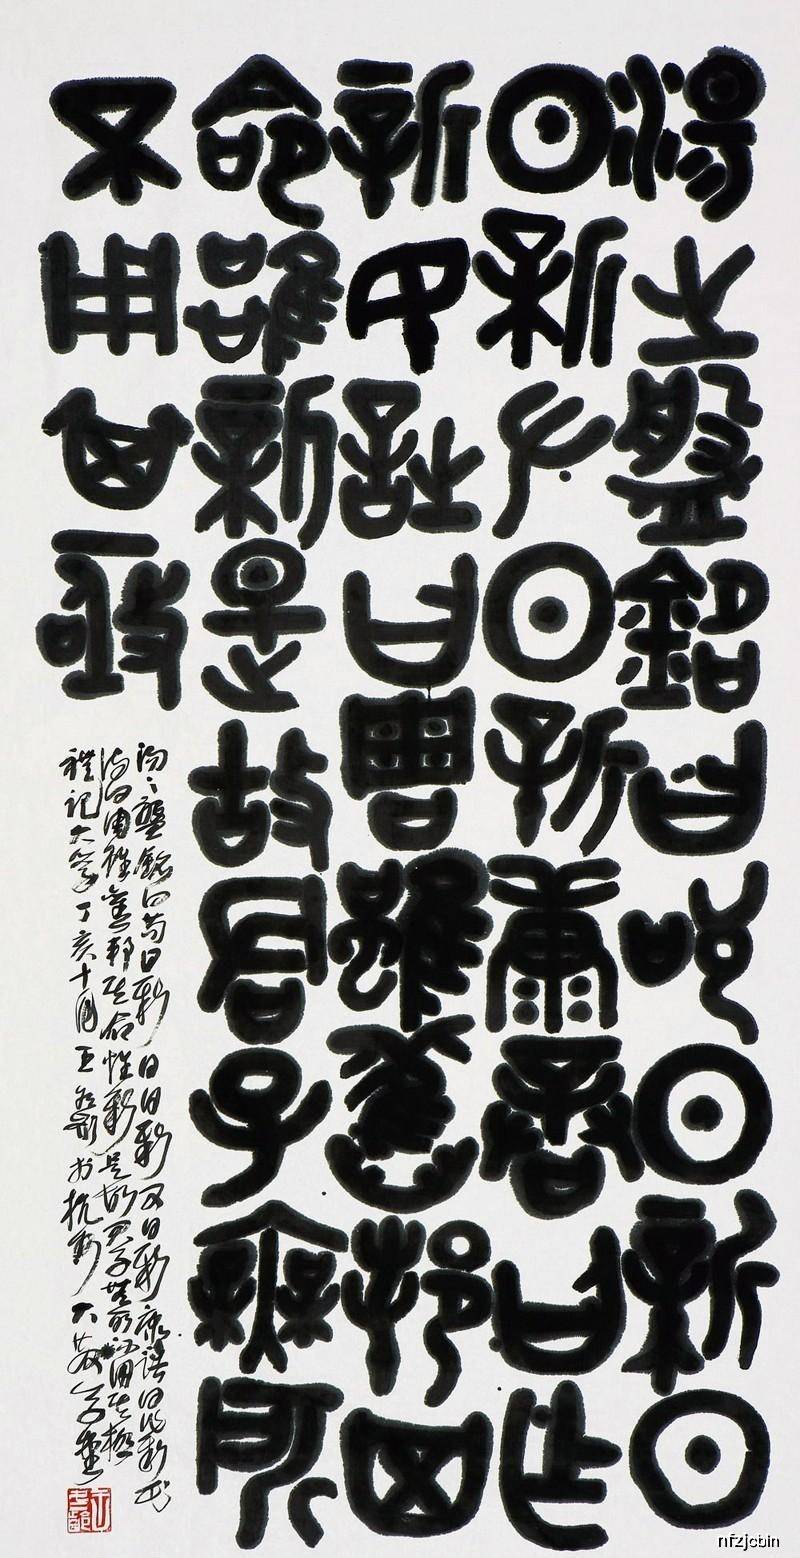 湯之盤銘曰苟日新日
日新又日新康誥曰作
新民詩曰周雖舊邦其
命雖新是故君子無所
不用其極
湯之盤銘曰苟日新日日新又日新康誥曰作新民
詩曰周雖舊邦其命惟新是故君子無所不用其極
禮記大學丁亥十月王冬齡於杭州大散草堂
nfzjcbin